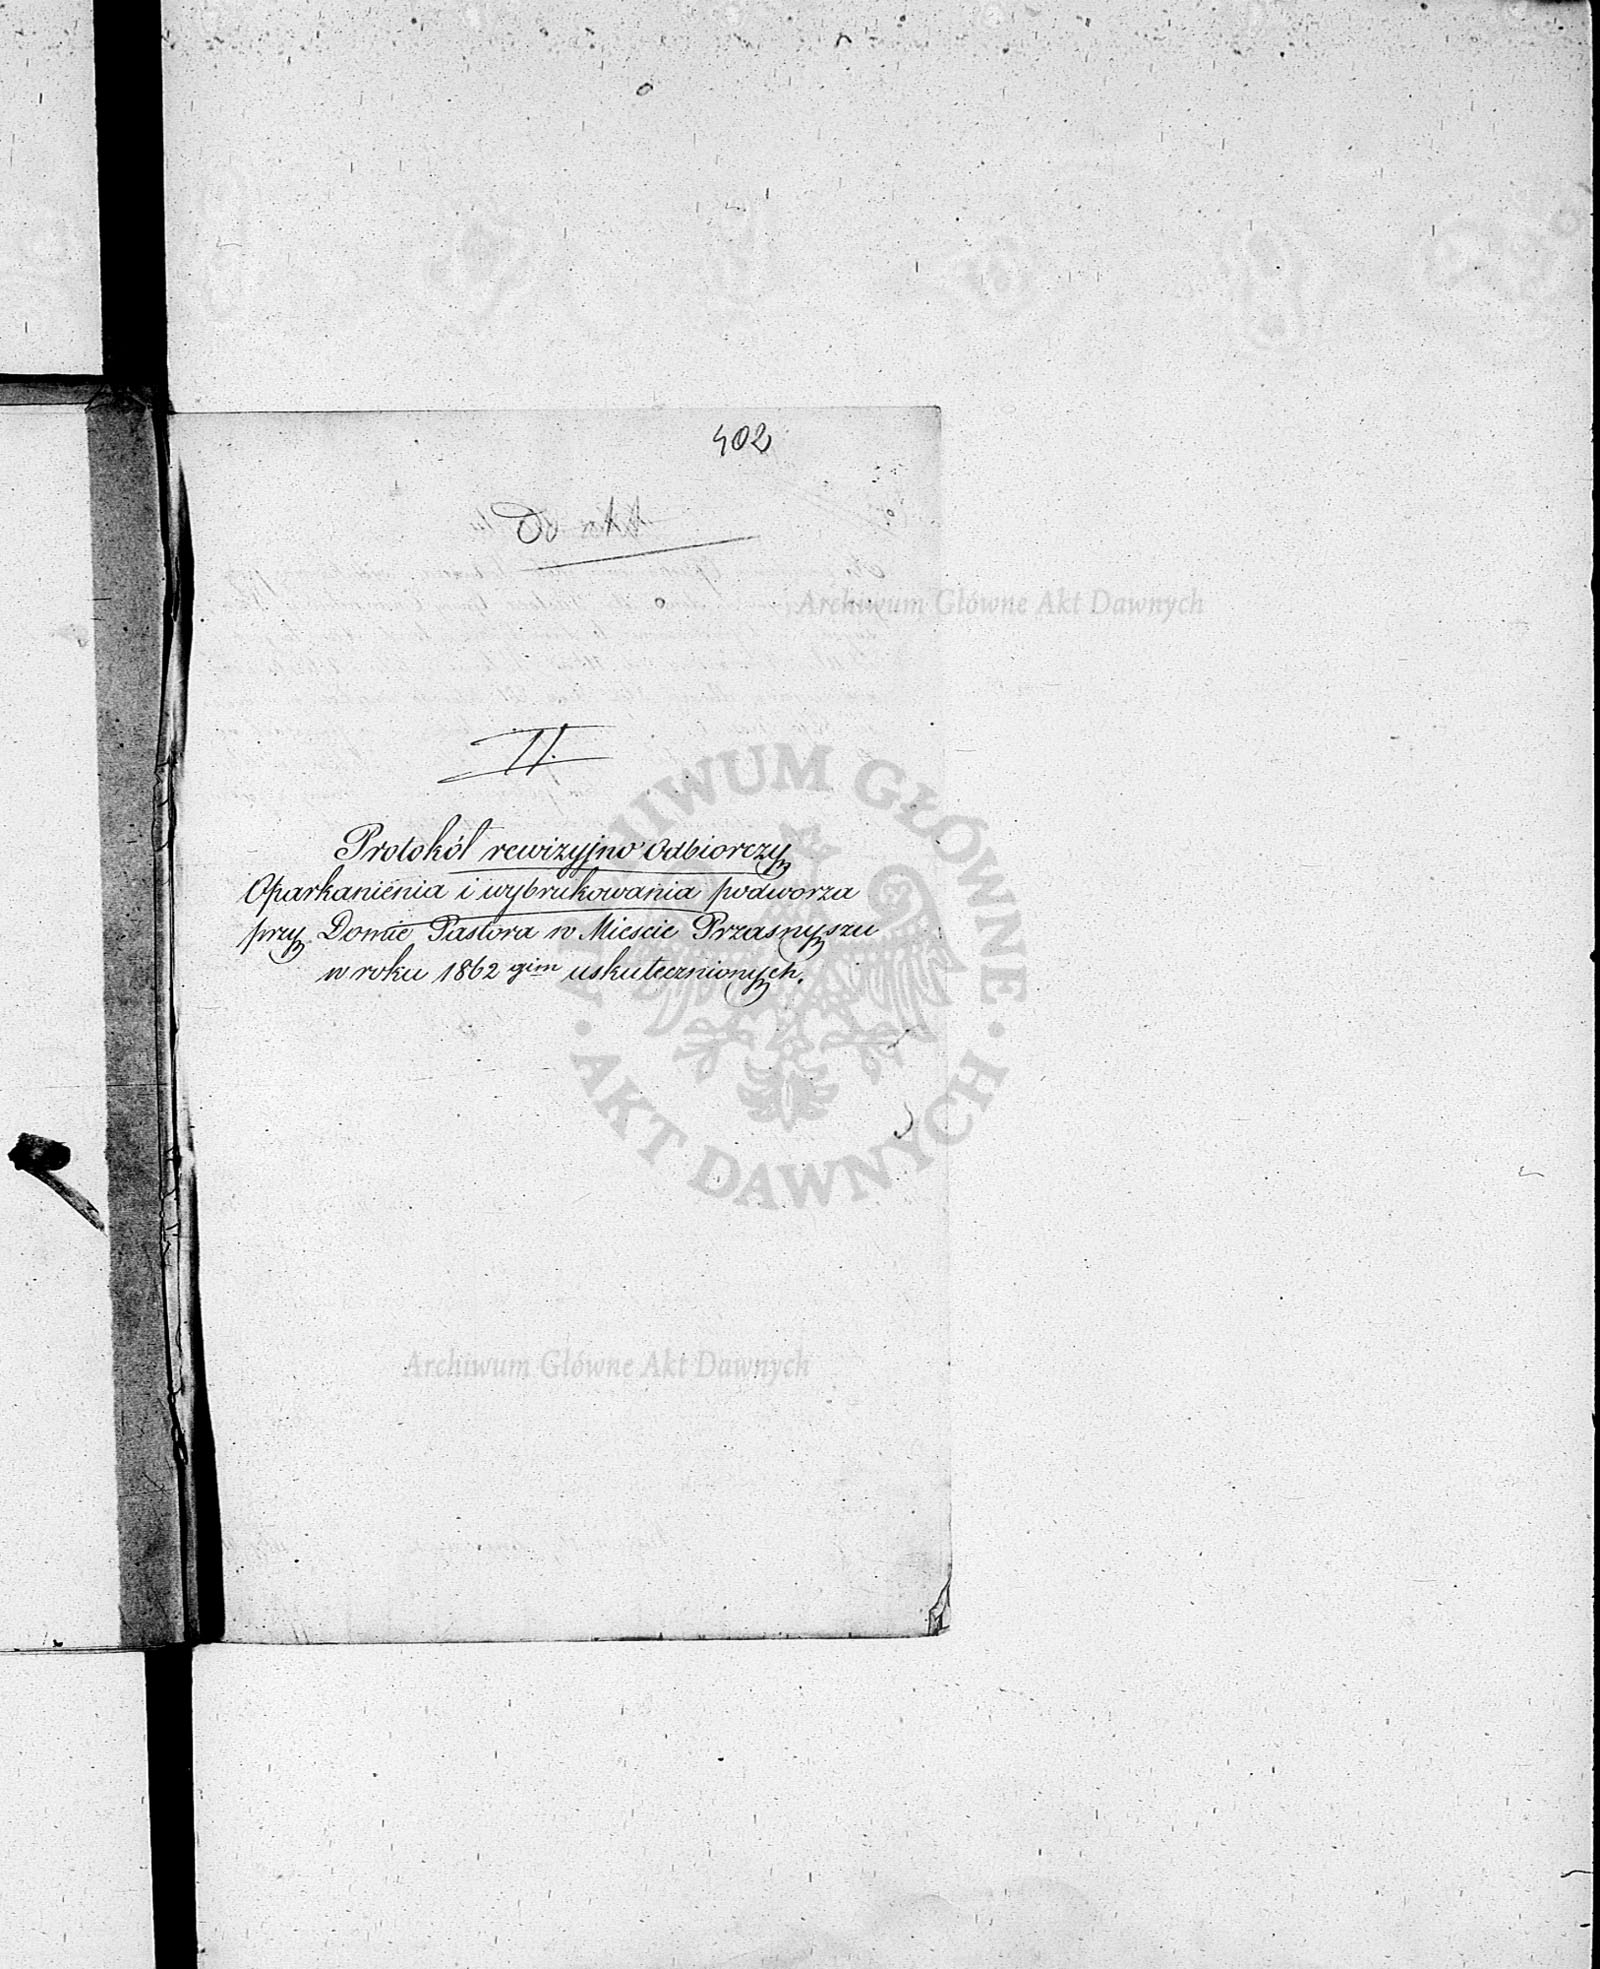 402
II.
Protokół rewizyjno odbiorczy
Oparkaniénia i wybrukowania podworza
przy Domie Pastora w Miescie Przasnyszu
w roku 1862 gim uskutecznionych.
Archiwum Główne Akt Dawnych
ARCHIWUM GŁÓWNE
· AKT DAWNYCH ·
Archiwum Główne Akt Dawnych